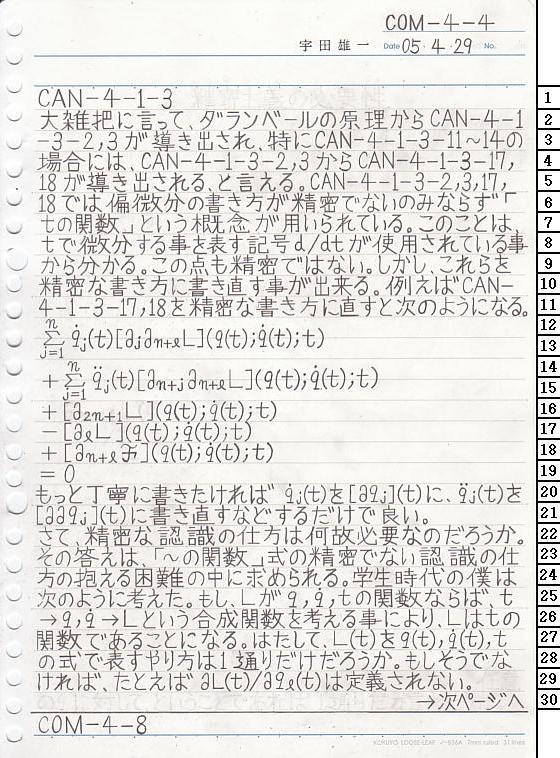 COM-4-4
宇田雄一 Date 05・4・29 No.
CAN-4-1-3
大雑把に言って、ダランベールの原理からCAN-4-1
-3-2,3が導き出され、特にCAN-4-1-3-11～14の
場合には、CAN-4-1-3-2,3からCAN-4-1-3-17,
18が導き出される、と言える。CAN-4-1-3-2,3,17,
18では偏微分の書き方が精密でないのみならず「
tの関数」という概念が用いられている。このことは、
tで微分する事を表す記号d/dtが使用されている事
から分かる。この点も精密ではない。しかし、これらを
精密な書き方に書き直す事が出来る。例えばCAN-
4-1-3-17,18を精密な書き方に直すと次のようになる。
∑_{j=1}^{n} q̇ⱼ(t)[∂ⱼ∂ₙ₊ₗL](q(t);q̇(t);t)
+∑_{j=1}^{n} q̈ⱼ(t)[∂ₙ₊ⱼ∂ₙ₊ₗL](q(t);q̇(t);t)
+[∂₂ₙ₊₁L](q(t);q̇(t);t)
-[∂ₗL](q(t);q̇(t);t)
+[∂ₙ₊ₗℱ](q(t);q̇(t);t)
=0
もっと丁寧に書きたければq̇ⱼ(t)を[∂qⱼ](t)に、q̈ⱼ(t)を
[∂∂qⱼ](t)に書き直すなどするだけで良い。
さて、精密な認識の仕方は何故必要なのだろうか。
その答えは、「～の関数」式の精密でない認識の仕
方の抱える困難の中に求められる。学生時代の僕は
次のように考えた。もし、Lがq,q̇,tの関数ならば、t
→q,q̇→Lという合成関数を考える事により、Lはtの
関数であることになる。はたして、L(t)をq(t),q̇(t),t
の式で表すやり方は1通りだけだろうか。もしそうでな
ければ、たとえば∂L(t)/∂qₗ(t)は定義されない。
→次ページへ
COM-4-8
KOKUYO LOOSE-LEAF ノ-836A 7mm ruled 31 lines
1
2
3
4
5
6
7
8
9
10
11
12
13
14
15
16
17
18
19
20
21
22
23
24
25
26
27
28
29
30